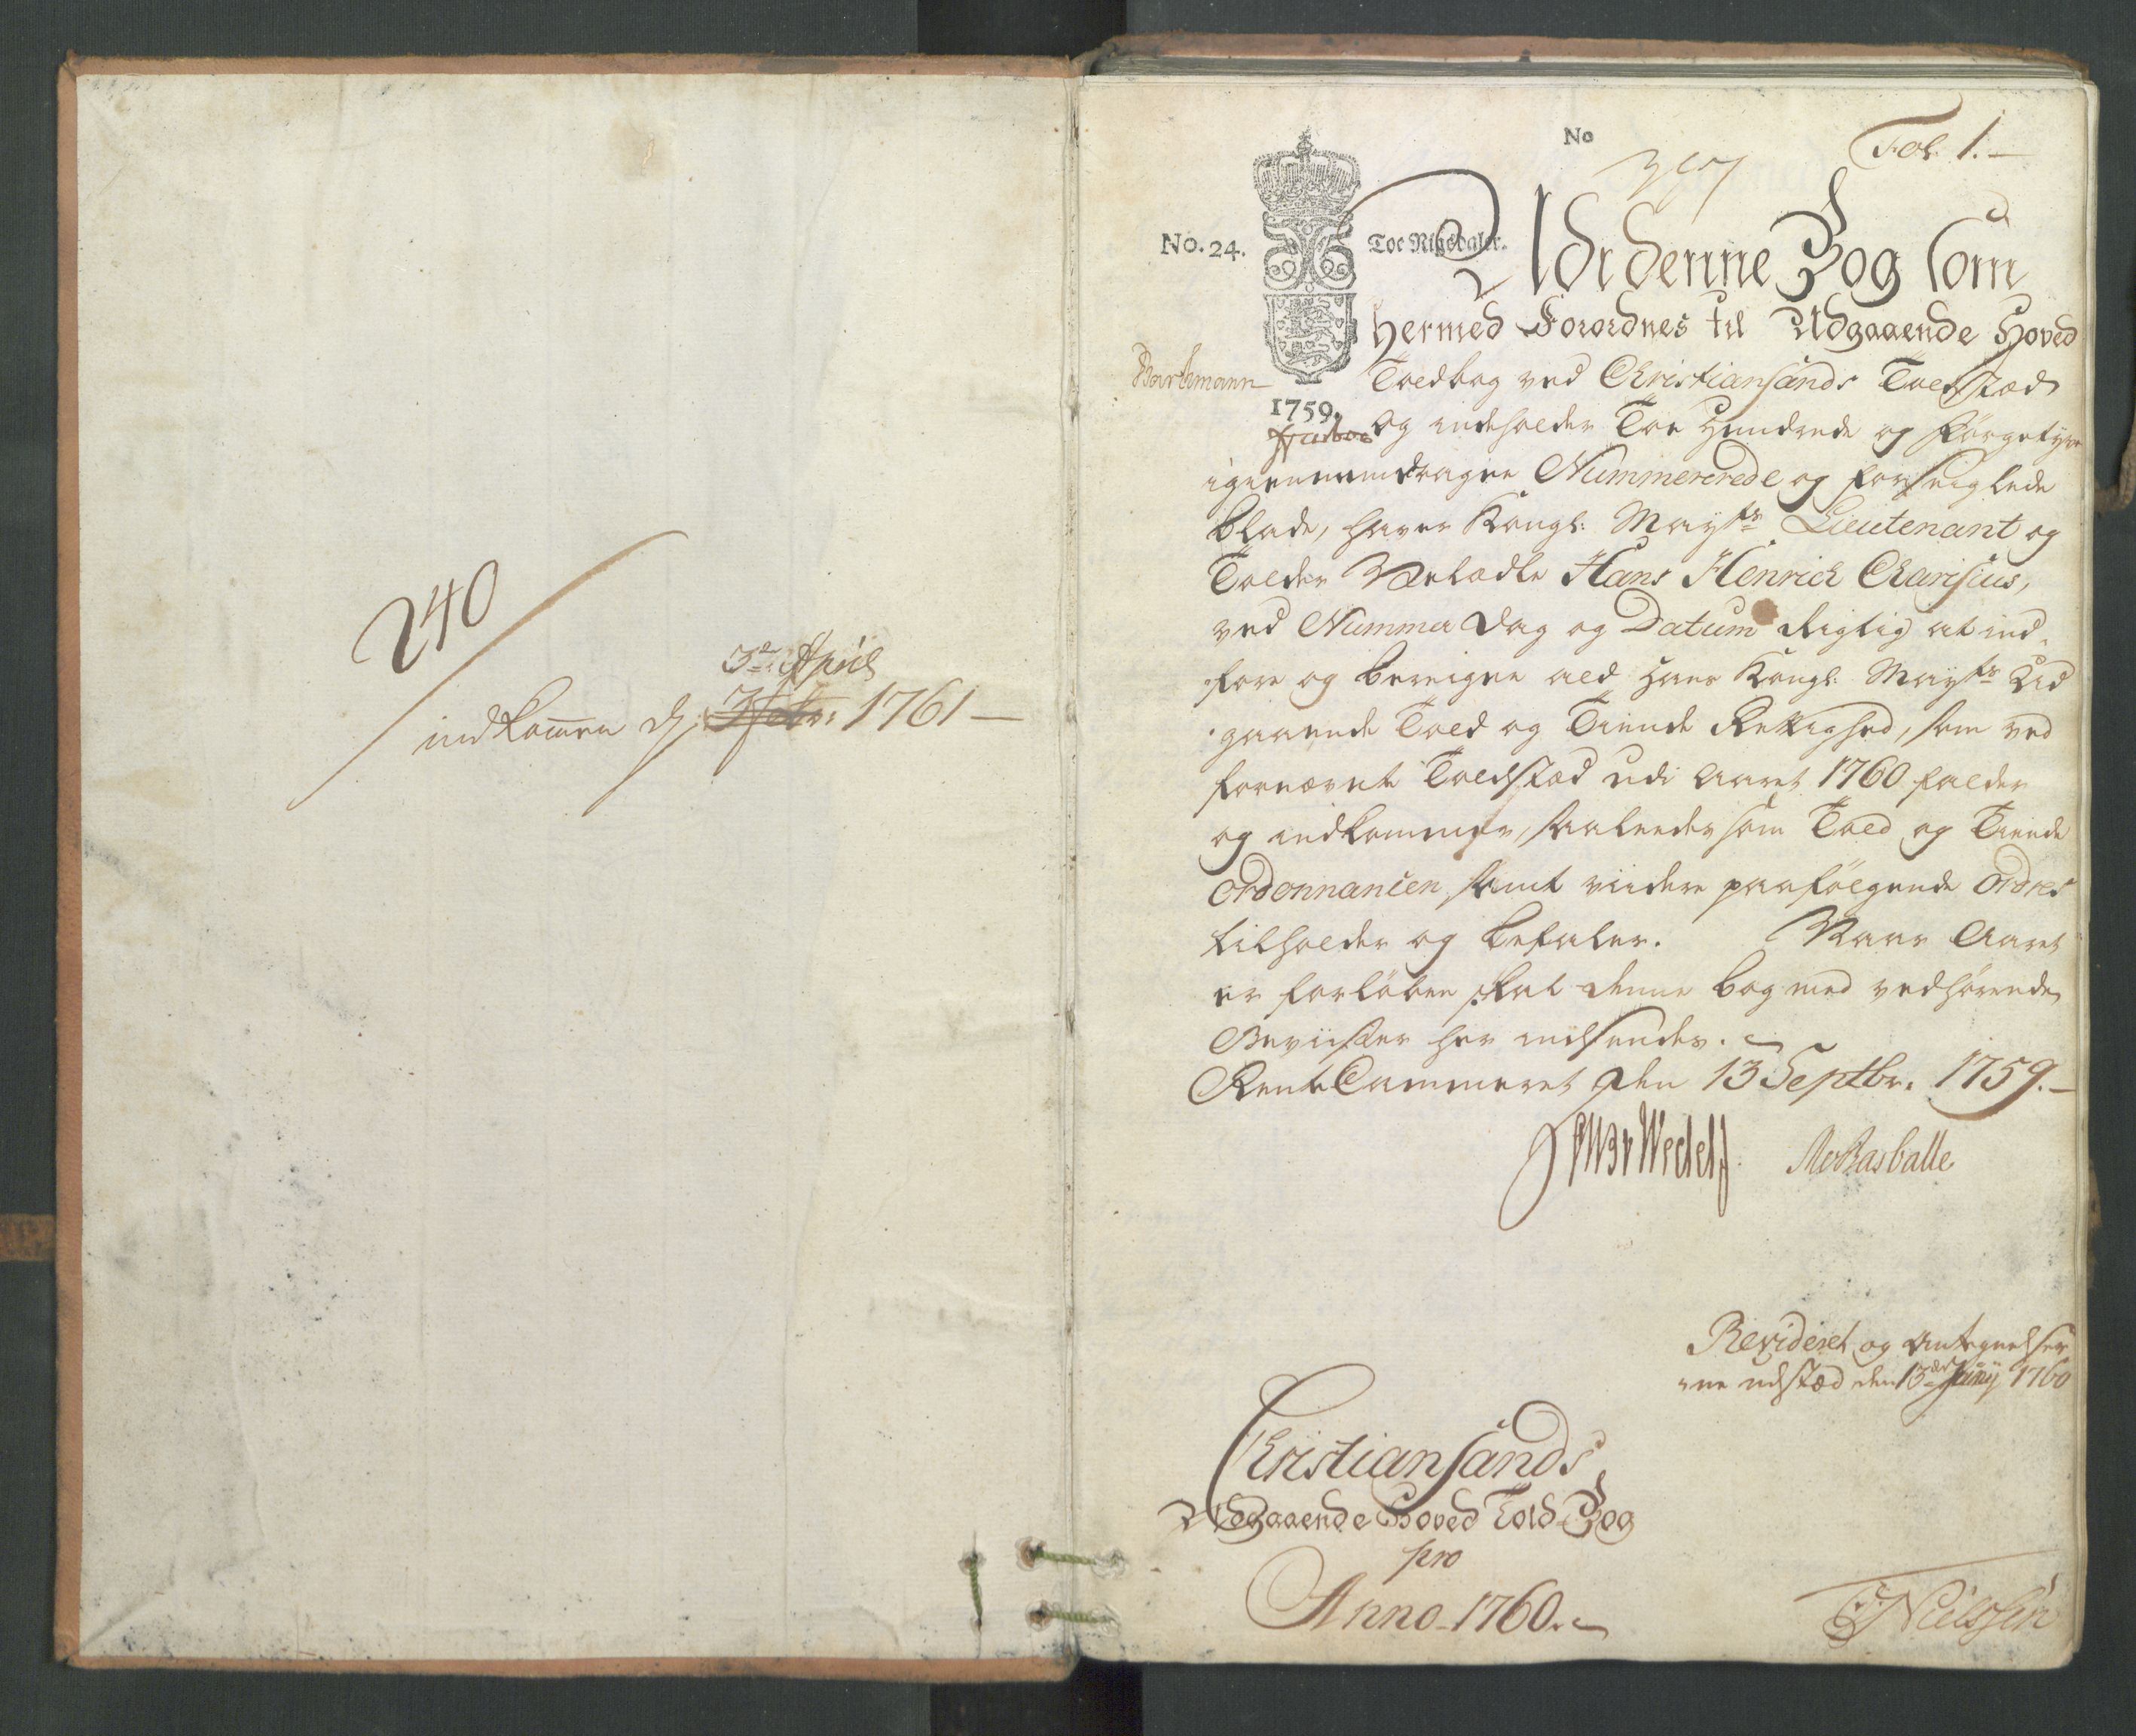 240
3de April
indkommen d: 3 Febr: 1761 —
No
Fol. 1. —
No. 24.
Toe Rigsdaler.
Udi denne Bog som
hermed Forordnes til Udgaaende Hoved
Toldbog ved Christiansands Toldstæd
1759.
og indeholder Toe Hundrede og Förgetyve
igiennemdragne Nummererede og forseiglede
blade, haver Kongl: Mayts Lieutenant og
Tolder Velædle Hans Henrich Charisius,
ved Nummer Dag og Datum Rigtig at ind-
føre og bereigne ald Hans Kongl: Mayts Ud
gaaende Told og Tiende Rettighed, som ved
fornævnte Toldstæd udi Aaret 1760 falder
og indkommer, saaleedes som Told og Tiende
Ordonnancen, samt viidere paafölgende Ordres
tilholder og befaler. Naar Aaret
er forløben skal denne bog med vedhørende
Beviister her indsendes.
RenteCammeret den 13 Septbr. 1759. —
Revideret og Antegnelser
ne udstæd den 13de Junij 1760
Christiansands
Udgaaende Hoved Told-Bog
pro
Anno 1760.
Nielssen